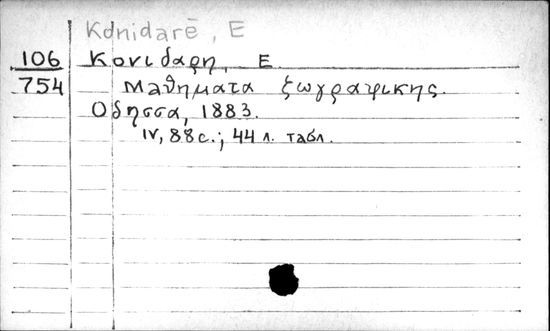 Konidarē, E
106 Κονιδαρη, Ε.
754 Μαθηματα ξωγραφικης.
Οδησσα, 1883.
IV, 88 с.; 44 л. табл.